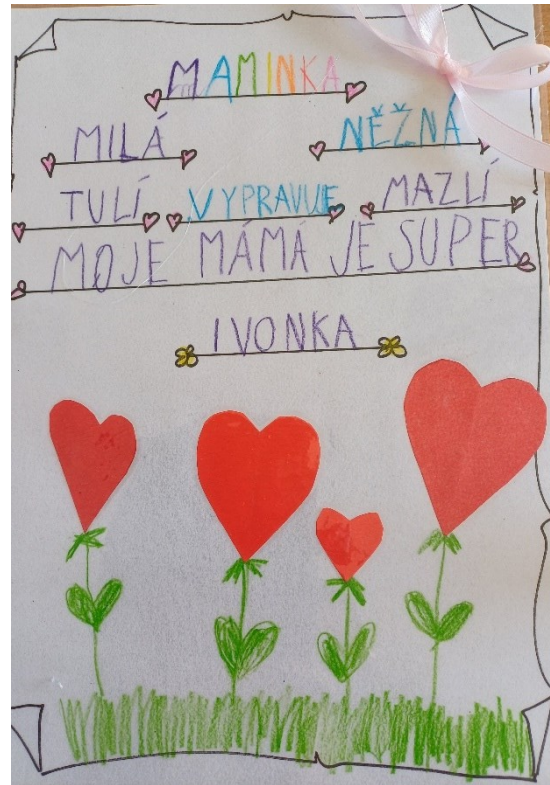 MAMINKA
MILÁ NĚŽNÁ
TULÍ VYPRAVUJE MAZLÍ
MOJE MÁMÁ JE SUPER
IVONKA